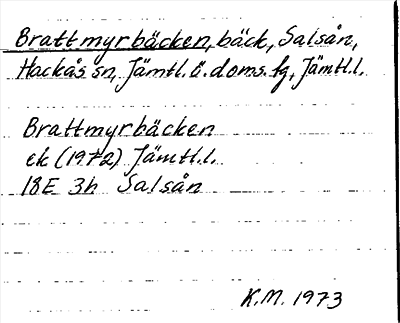 Brattmyrbäcken, bäck, Salsån,
Hackås sn, Jämtl. ö. doms. fg, Jämtl.l.
Brattmyrbäcken
ek (1972) Jämtl.l.
18E 3h Salsån
K.M. 1973